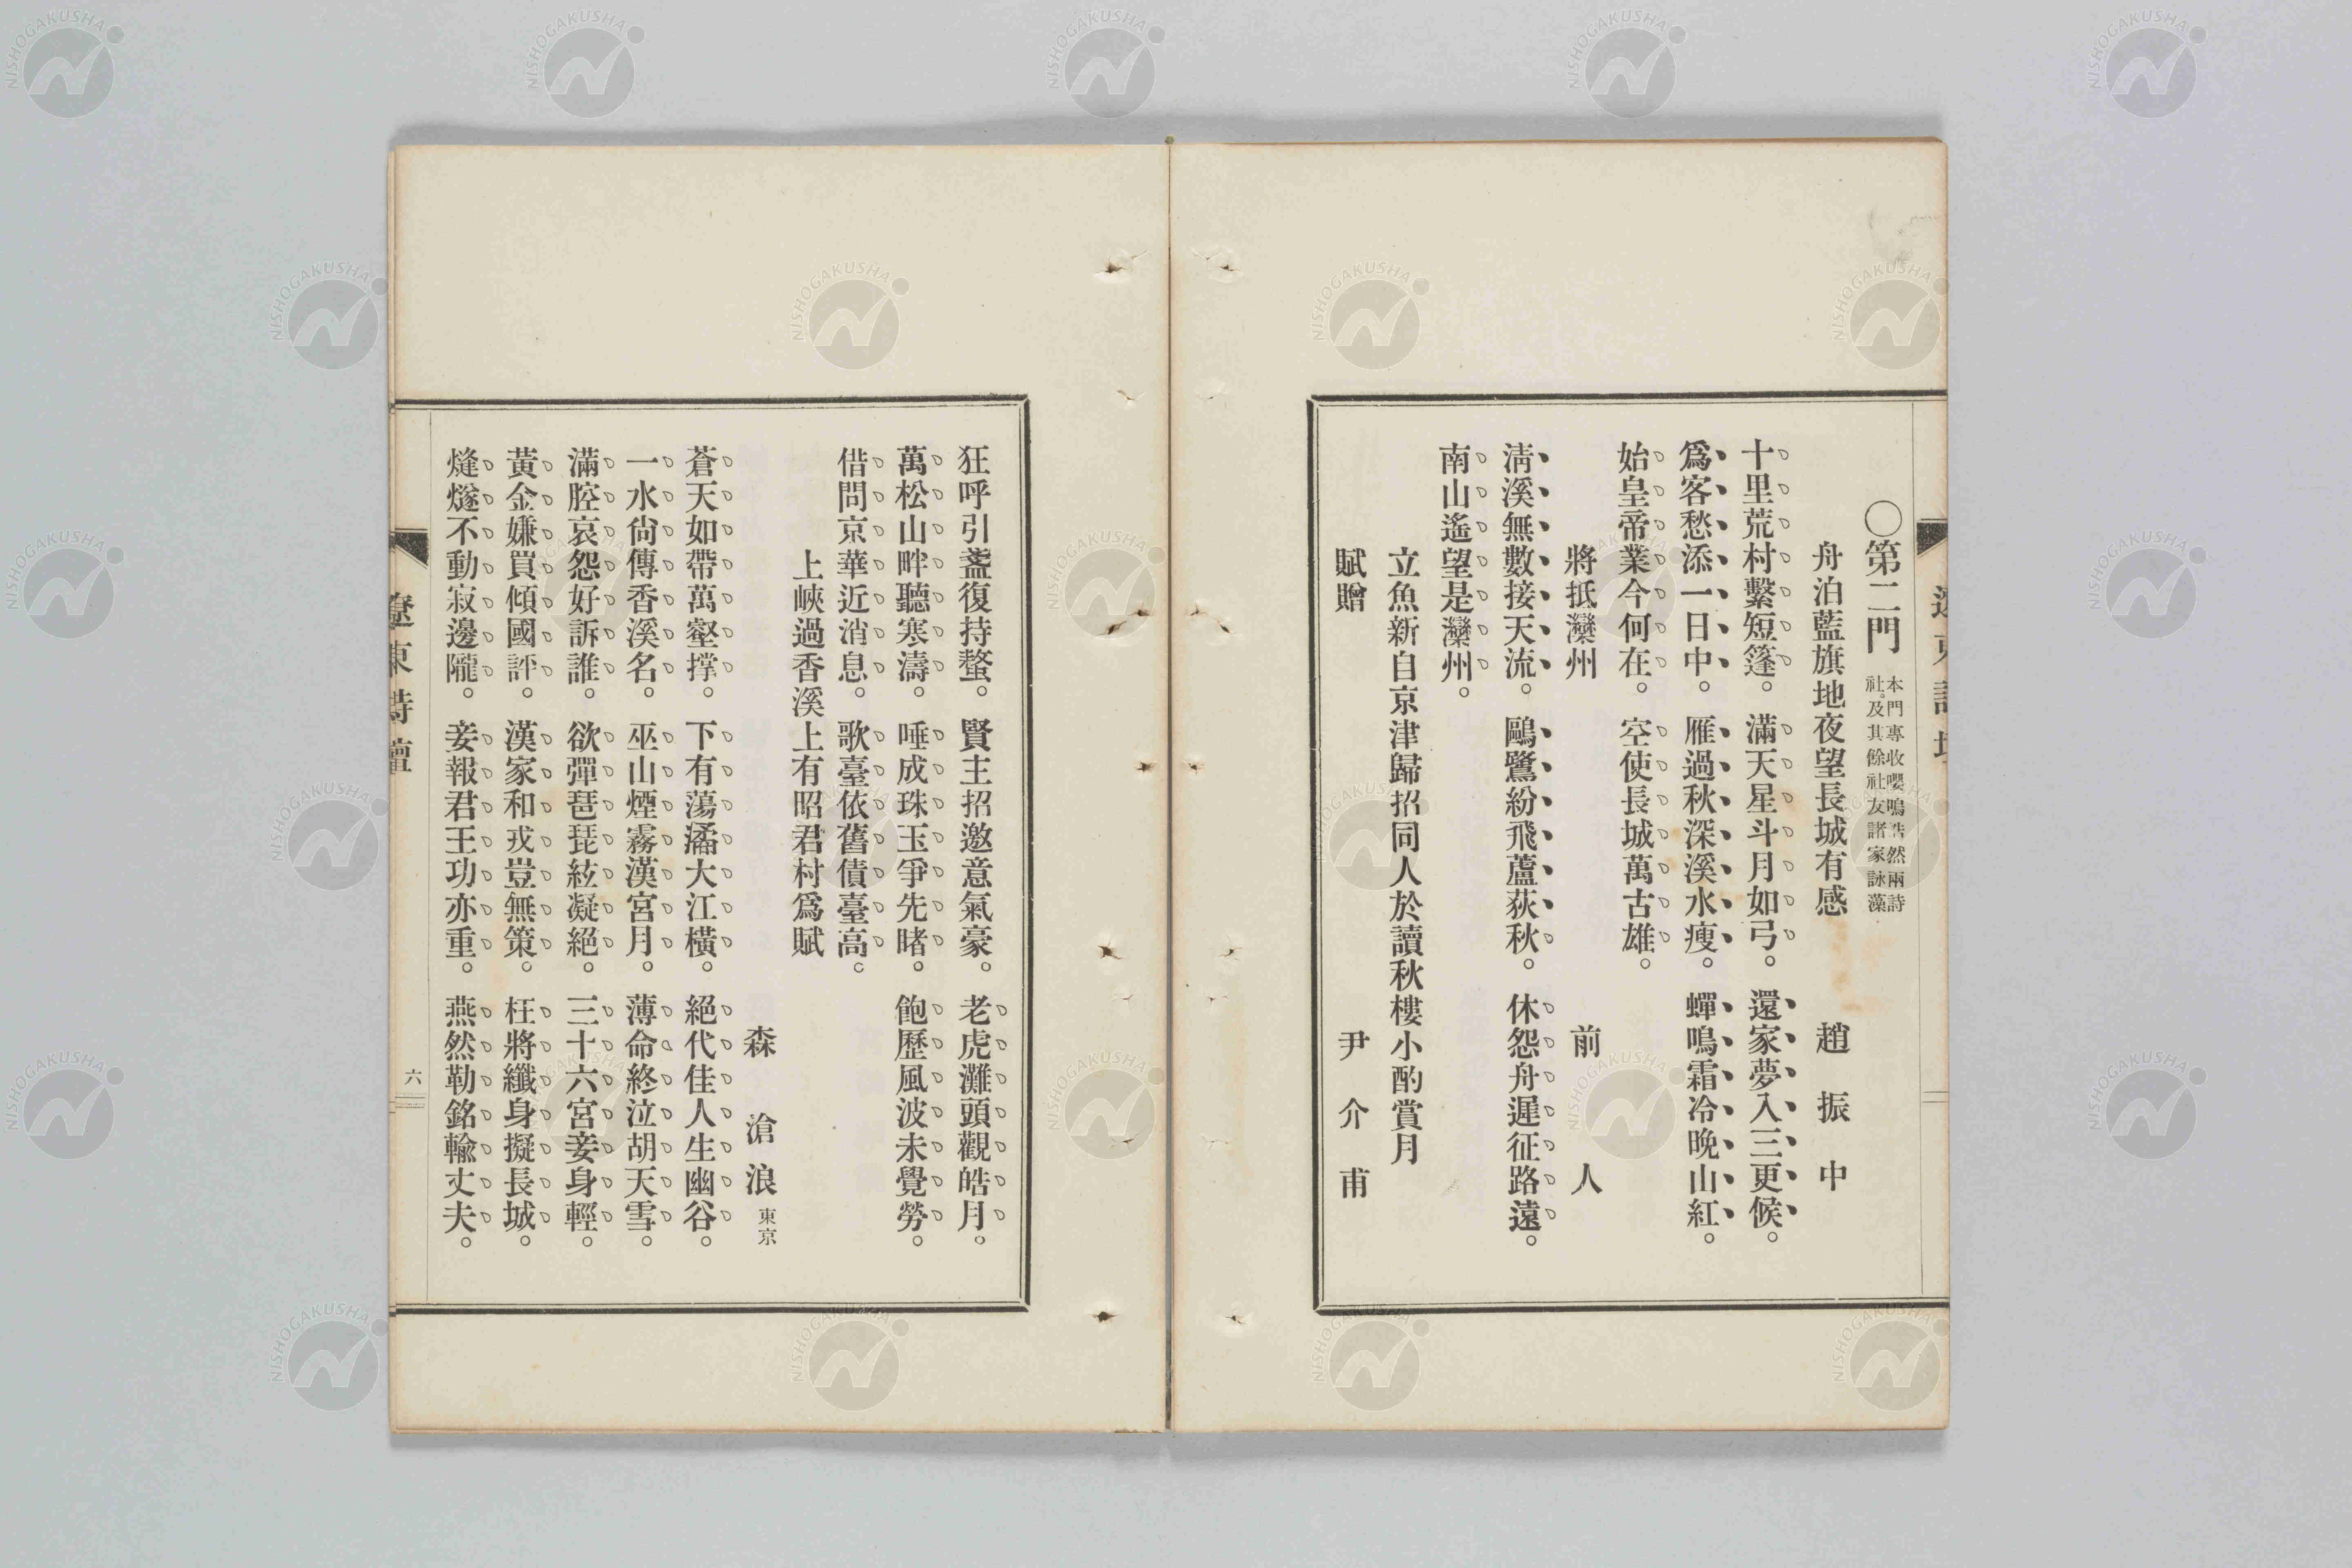 遼東詩壇
〇第二門 本門專收嚶鳴浩然兩詩社。及其餘社友諸家詠藻
舟泊藍旗地夜望長城有感 趙振中
十里荒村繫短篷。滿天星斗月如弓。還家夢入三更候。
爲客愁添一日中。雁過秋深溪水瘦。蟬鳴霜冷晚山紅。
始皇帝業今何在。空使長城萬古雄。
將抵灤州 前人
淸溪無數接天流。鷗鷺紛飛蘆荻秋。休怨舟遲征路遠。
南山遙望是灤州。
立魚新自京津歸招同人於讀秋樓小酌賞月
賦贈 尹介甫
狂呼引盞復持螯。賢主招邀意氣豪。老虎灘頭觀皓月。
萬松山畔聽寒濤。唾成珠玉爭先睹。飽歷風波未覺勞。
借問京華近消息。歌臺依舊債臺高。
上峽過香溪上有昭君村爲賦
森滄浪 東京
蒼天如帶萬壑撑。下有蕩潏大江橫。絕代佳人生幽谷。
一水尙傳香溪名。巫山煙霧漢宮月。薄命終泣胡天雪。
滿腔哀怨好訴誰。欲彈琵琶絃凝絕。三十六宮妾身輕。
黃金嫌買傾國評。漢家和戎豈無策。枉將纖身擬長城。
燧不動寂邊隴。妾報君王功亦重。燕然勒銘輸丈夫。
遼東詩壇
六
NISHOGAKUSHA